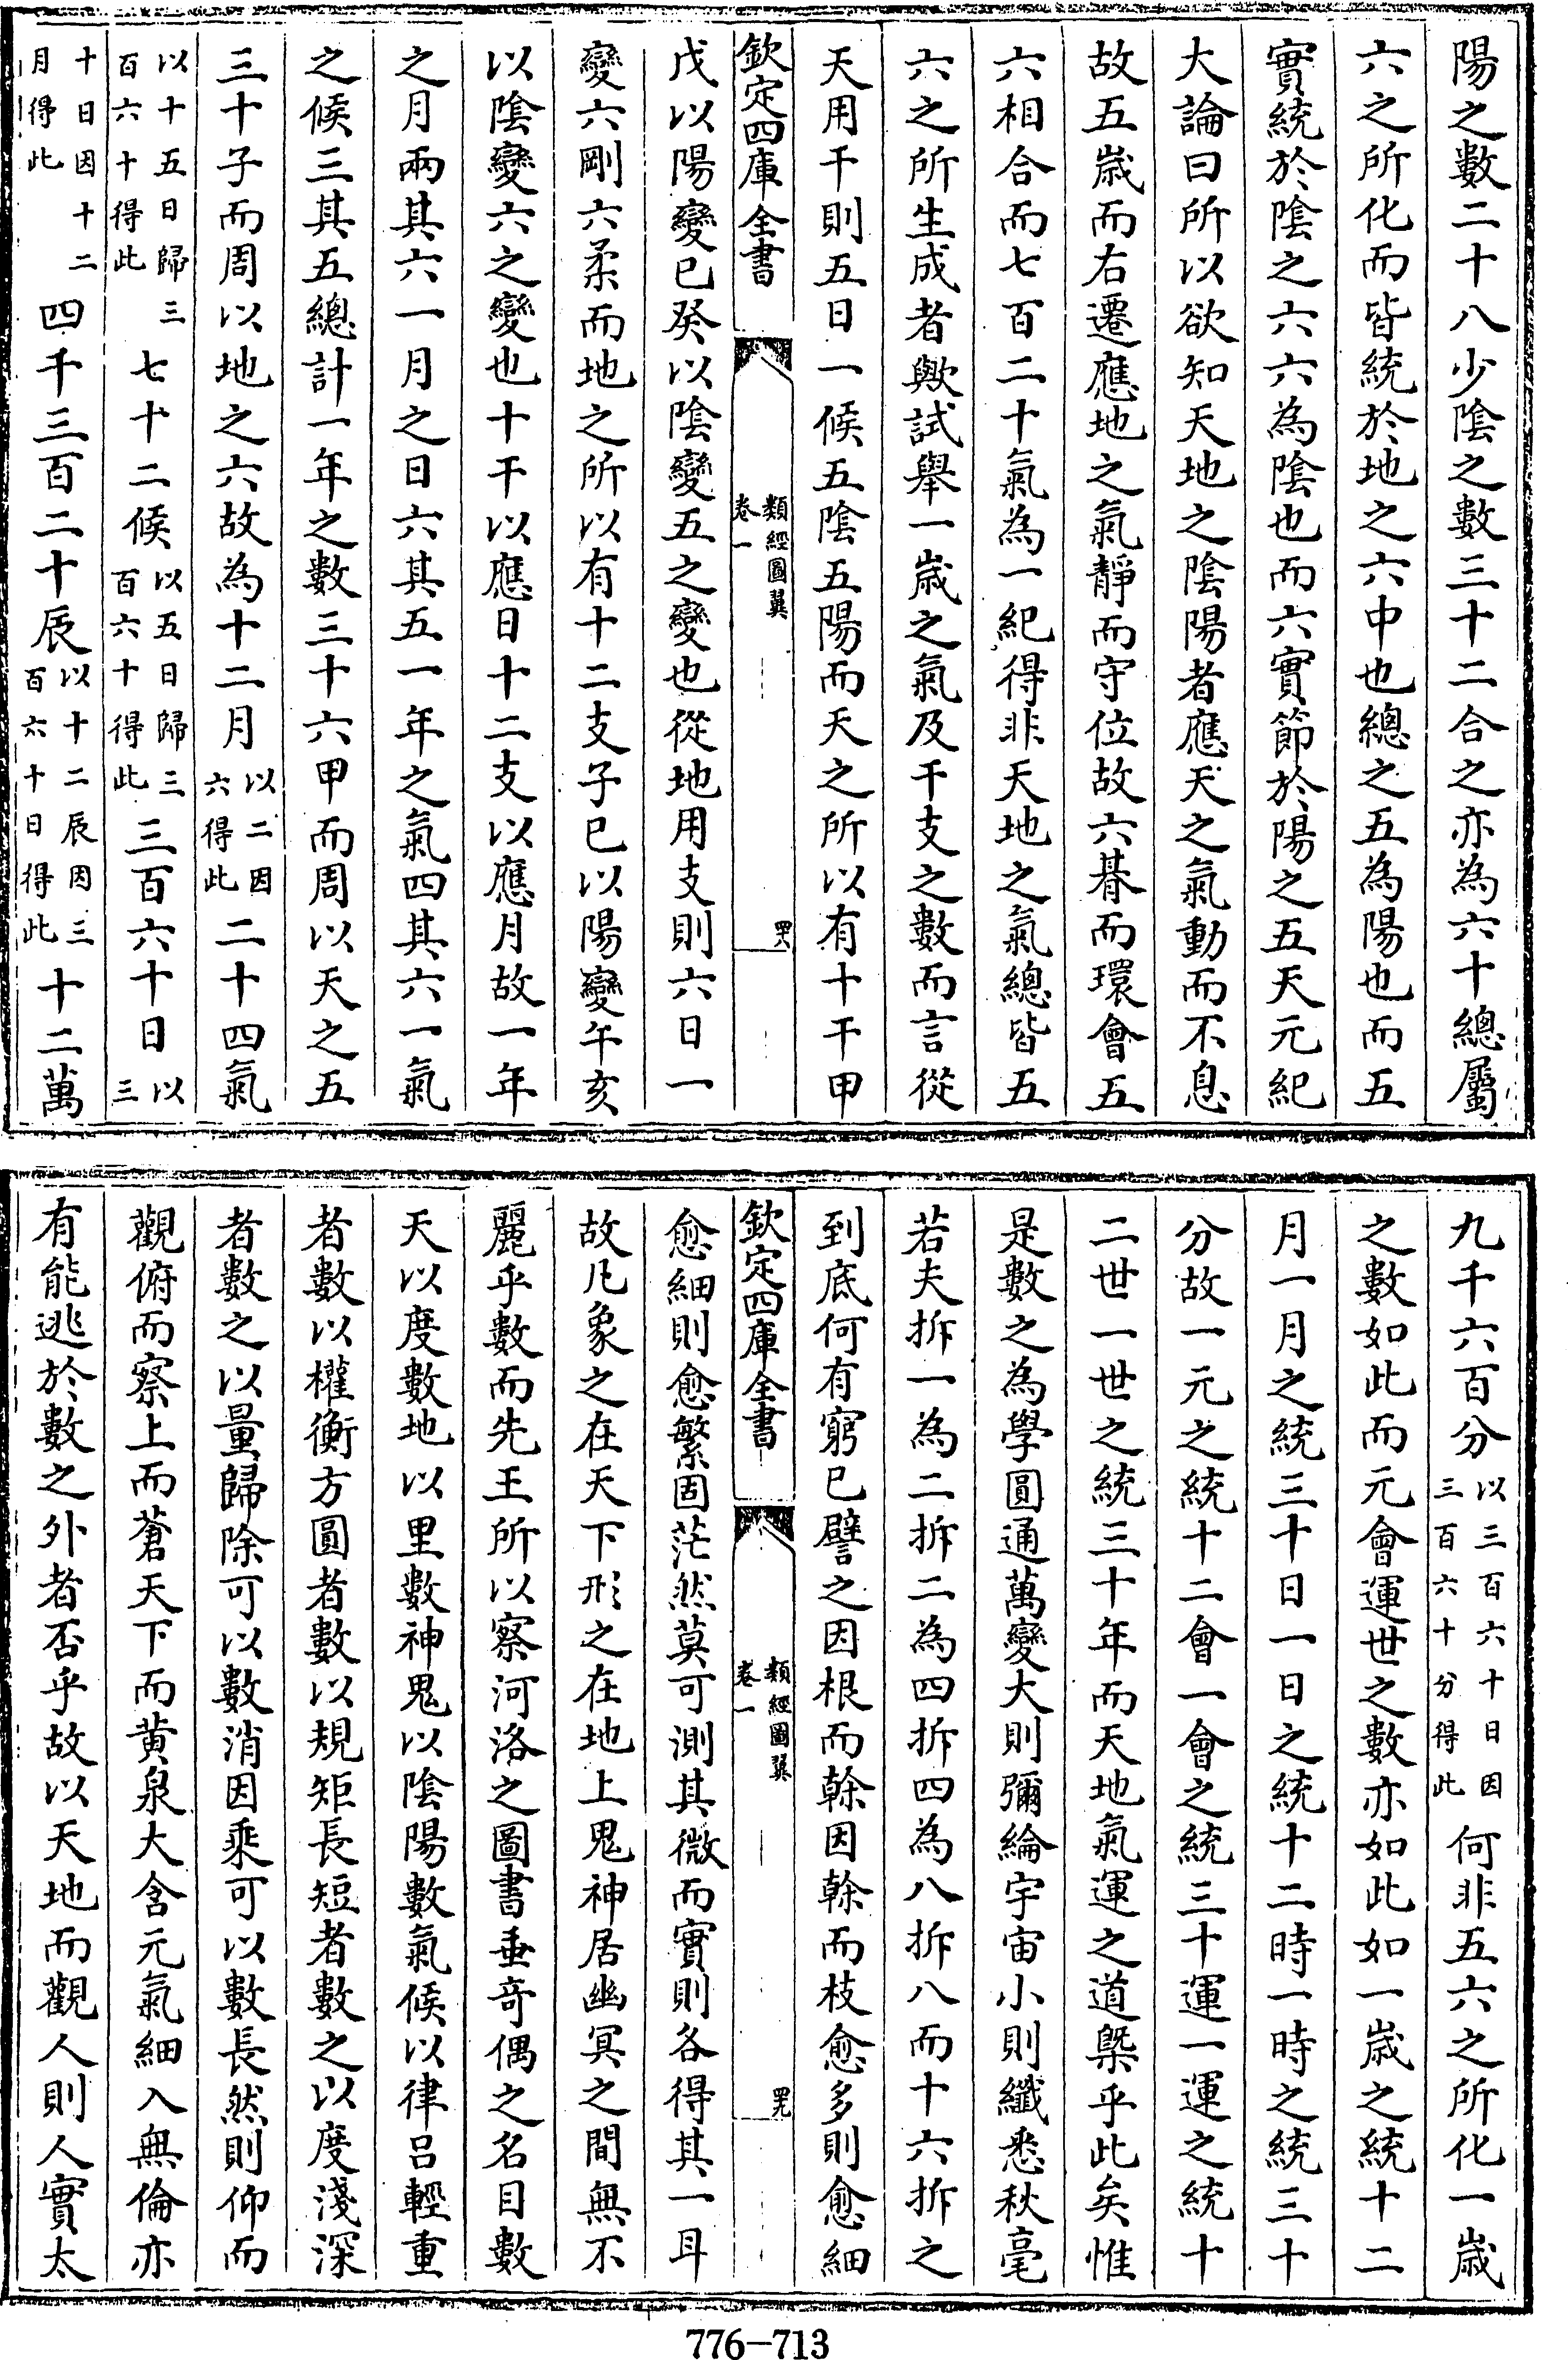 陽之數二十八少陰之數三十二合之亦為六十總屬
六之所化而皆統於地之六中也總之五為陽也而五
實統於陰之六六為陰也而六實節於陽之五天元紀
大論曰所以欲知天地之陰陽者應天之氣動而不息
故五歲而右遷應地之氣靜而守位故六朞而環會五
六相合而七百二十氣為一紀得非天地之氣總皆五
六之所生成者歟試舉一歲之氣及干支之數而言從
天用干則五日一候五陰五陽而天之所以有十干甲
欽定四庫全書
類經圖翼
卷一
罒八
戊以陽變已癸以陰變五之變也從地用支則六日一
變六剛六柔而地之所以有十二支子巳以陽變午亥
以陰變六之變也十干以應日十二支以應月故一年
之月兩其六一月之日六其五一年之氣四其六一氣
之候三其五總計一年之數三十六甲而周以天之五
三十子而周以地之六故為十二月以二因六得此二十四氣
以十五日歸三百六十得此七十二候以五日歸三百六十得此三百六十日以三
十日因十二月得此四千三百二十辰以十二辰因三百六十日得此十二萬
九千六百分以三百六十日因三百六十分得此何非五六之所化一歲
之數如此而元會運世之數亦如此如一歲之統十二
月一月之統三十日一日之統十二時一時之統三十
分故一元之統十二會一會之統三十運一運之統十
二世一世之統三十年而天地氣運之道槩乎此矣惟
是數之為學圓通萬變大則彌綸宇宙小則纖悉秋毫
若夫拆一為二拆二為四拆四為八拆八而十六拆之
到底何有窮已譬之因根而榦因榦而枝愈多則愈細
欽定四庫全書
類經圖翼
卷一
罒九
愈細則愈繁固茫然莫可測其微而實則各得其一耳
故凡象之在天下形之在地上鬼神居幽冥之間無不
麗乎數而先王所以察河洛之圖書垂竒偶之名目數
天以度數地以里數神鬼以陰陽數氣候以律呂輕重
者數以權衡方圓者數以規矩長短者數之以度淺深
者數之以量歸除可以數消因乘可以數長然則仰而
觀俯而察上而蒼天下而黄泉大含元氣細入無倫亦
有能逃於數之外者否乎故以天地而觀人則人實太
776-713